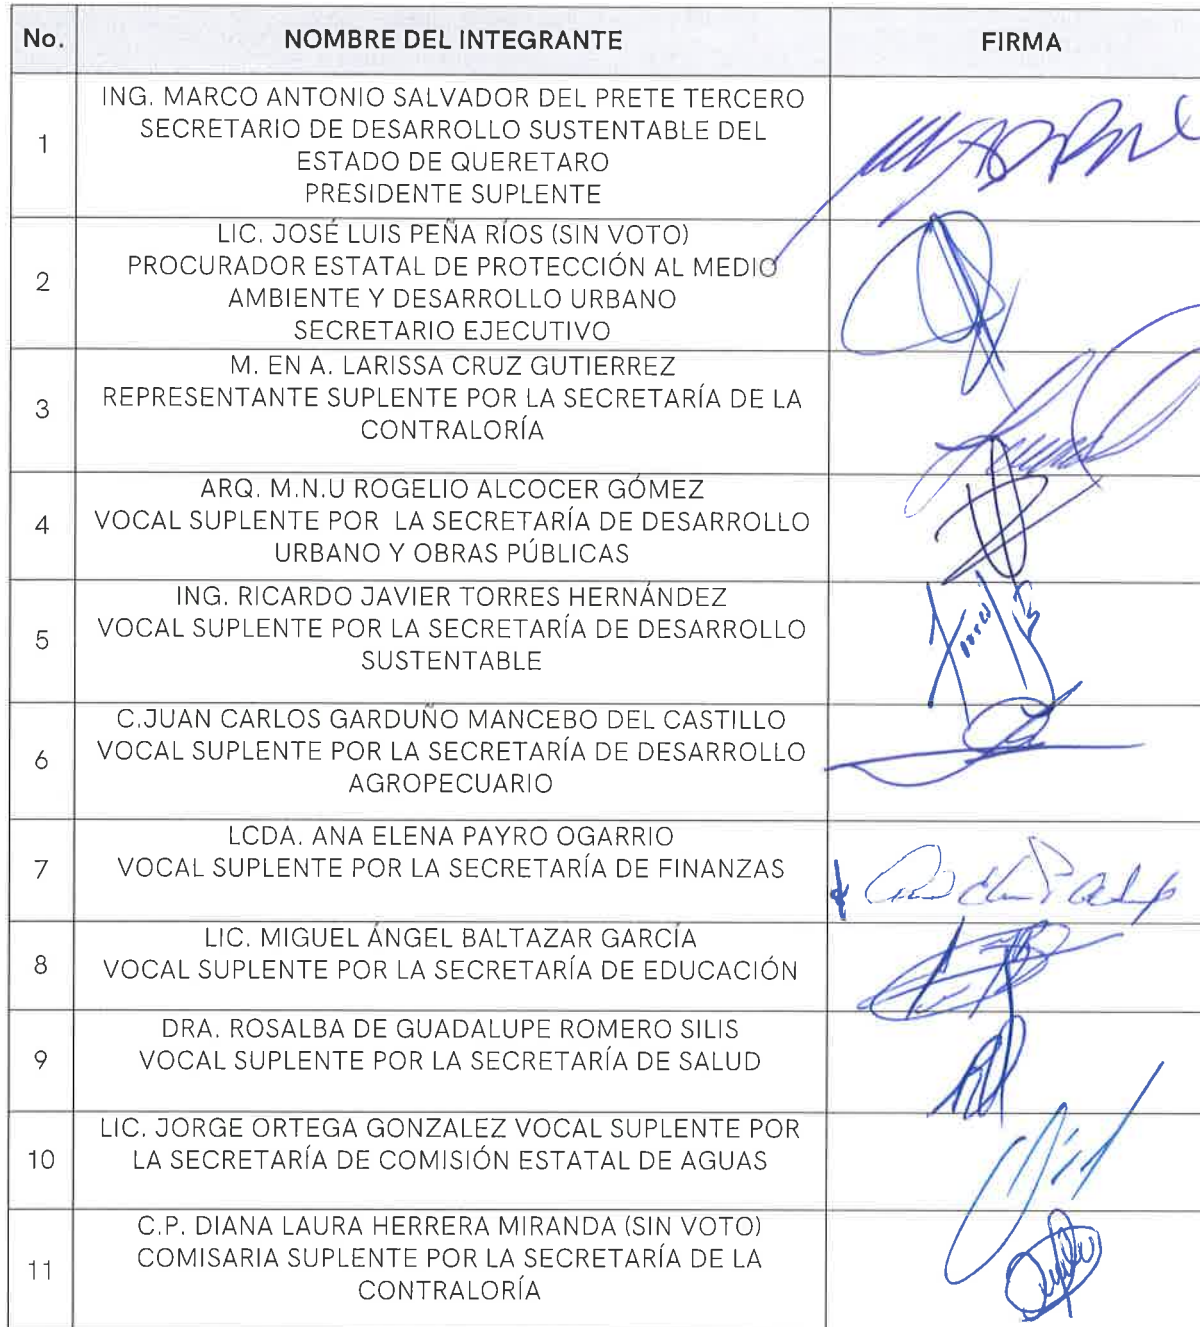 No. NOMBRE DEL INTEGRANTE FIRMA
1
ING. MARCO ANTONIO SALVADOR DEL PRETE TERCERO
SECRETARIO DE DESARROLLO SUSTENTABLE DEL
ESTADO DE QUERETARO
PRESIDENTE SUPLENTE
2
LIC. JOSÉ LUIS PEÑA RÍOS (SIN VOTO)
PROCURADOR ESTATAL DE PROTECCIÓN AL MEDIO
AMBIENTE Y DESARROLLO URBANO
SECRETARIO EJECUTIVO
3
M. EN A. LARISSA CRUZ GUTIERREZ
REPRESENTANTE SUPLENTE POR LA SECRETARÍA DE LA
CONTRALORÍA
4
ARQ. M.N.U ROGELIO ALCOCER GÓMEZ
VOCAL SUPLENTE POR LA SECRETARÍA DE DESARROLLO
URBANO Y OBRAS PÚBLICAS
5
ING. RICARDO JAVIER TORRES HERNÁNDEZ
VOCAL SUPLENTE POR LA SECRETARÍA DE DESARROLLO
SUSTENTABLE
6
C.JUAN CARLOS GARDUÑO MANCEBO DEL CASTILLO
VOCAL SUPLENTE POR LA SECRETARÍA DE DESARROLLO
AGROPECUARIO
7
LCDA. ANA ELENA PAYRO OGARRIO
VOCAL SUPLENTE POR LA SECRETARÍA DE FINANZAS
8
LIC. MIGUEL ÁNGEL BALTAZAR GARCÍA
VOCAL SUPLENTE POR LA SECRETARÍA DE EDUCACIÓN
9
DRA. ROSALBA DE GUADALUPE ROMERO SILIS
VOCAL SUPLENTE POR LA SECRETARÍA DE SALUD
10
LIC. JORGE ORTEGA GONZALEZ VOCAL SUPLENTE POR
LA SECRETARÍA DE COMISIÓN ESTATAL DE AGUAS
11
C.P. DIANA LAURA HERRERA MIRANDA (SIN VOTO)
COMISARIA SUPLENTE POR LA SECRETARÍA DE LA
CONTRALORÍA